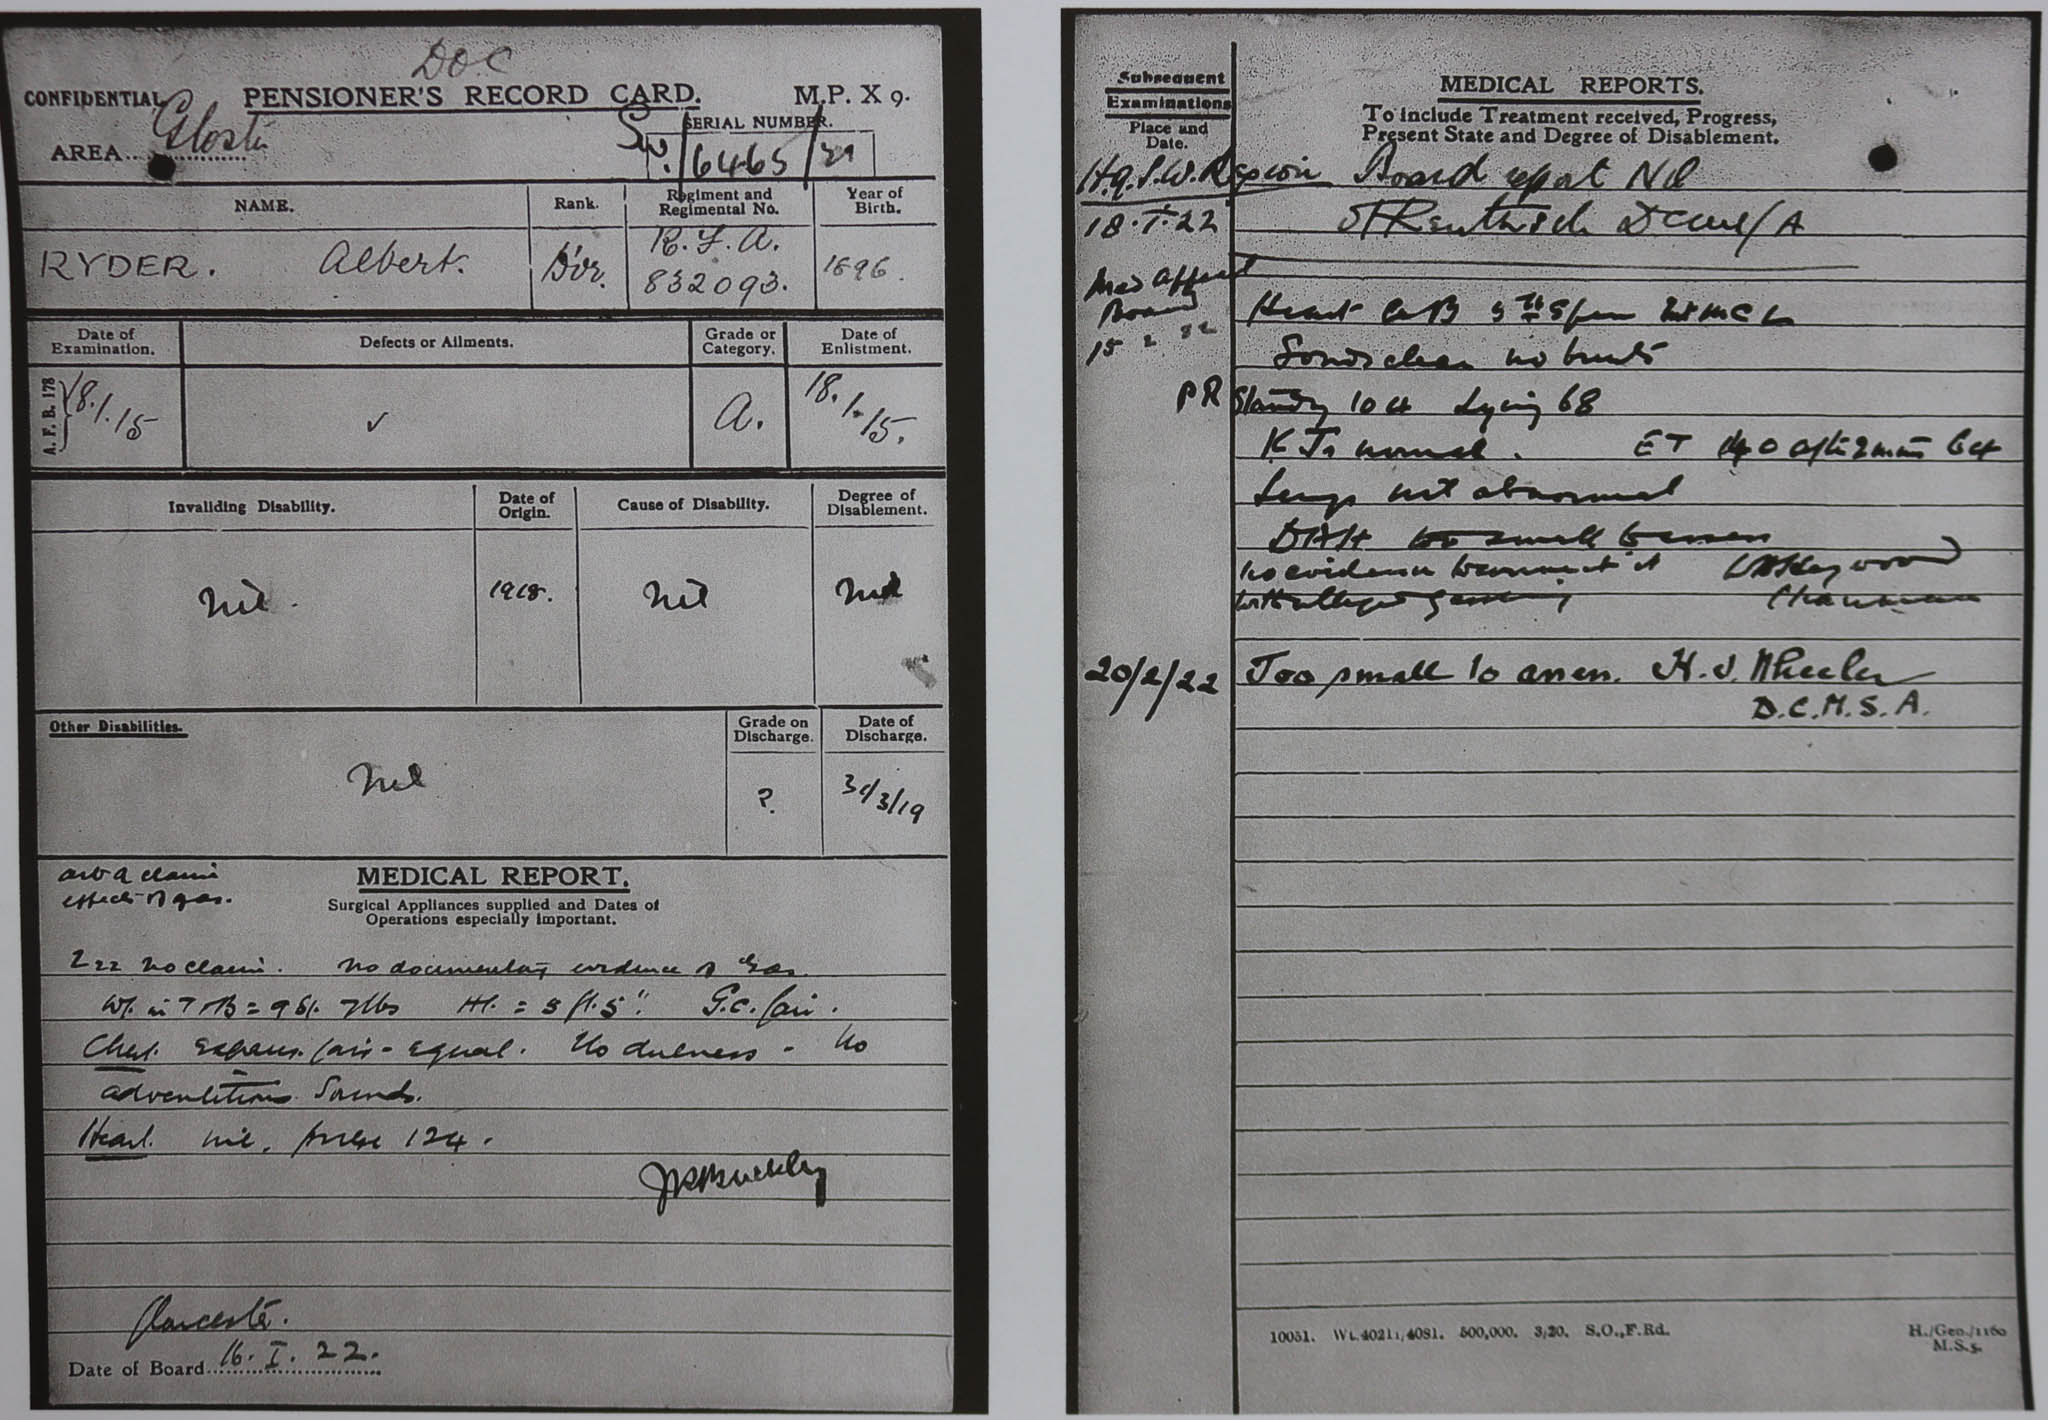 DOC
CONFIDENTIAL PENSIONER'S RECORD CARD. M.P. X 9.
AREA Gloster
SERIAL NUMBER.
/6465/21
NAME. Rank. Regiment and Regimental No. Year of Birth.
RYDER. Albert. Dvr. R.F.A. 832093. 1896.
Date of Examination. Defects or Ailments. Grade or Category. Date of Enlistment.
A. F. B. 178 18.1.15 ✓ A. 18.1.15.
Invaliding Disability. Date of Origin. Cause of Disability. Degree of Disablement.
Nil. 1918. Nil Nil
Other Disabilities. Grade on Discharge. Date of Discharge.
Nil ? 31/3/19
claim
effects of gas.
MEDICAL REPORT.
Surgical Appliances supplied and Dates of
Operations especially important.
Z22 no claim. No documentary evidence of Gas.
Wt. in T & B = 9 st. 7 lbs Ht. = 5 ft. 5". G.C. fair.
Chest. Expans. fair - equal. No dulness - No
adventitious Sounds.
Heart. nil. Pulse 124.
Gloucester.
Date of Board 16. I. 22.
Subsequent
Examinations
Place and
Date.
MEDICAL REPORTS.
To include Treatment received, Progress,
Present State and Degree of Disablement.
Hq. S.W. Region Board report Nil
18.I.22
Med Appeal
Board
15 2 22
Heart AB 5th Space
Sounds clear no bruits
PR Standing 104 Lying 68
K Js normal. ET 140 after 2 mins 64
Lungs not abnormal
DAH too small to assess
no evidence to connect it
with alleged gassing
Chairman
20/2/22 Too small to assess. H. J. Wheeler
D.C.M.S.A.
10051. Wt. 4021/4081. 500,000. 3/20. S.O.,F.Rd. H./Gen./1160
M.S.5.